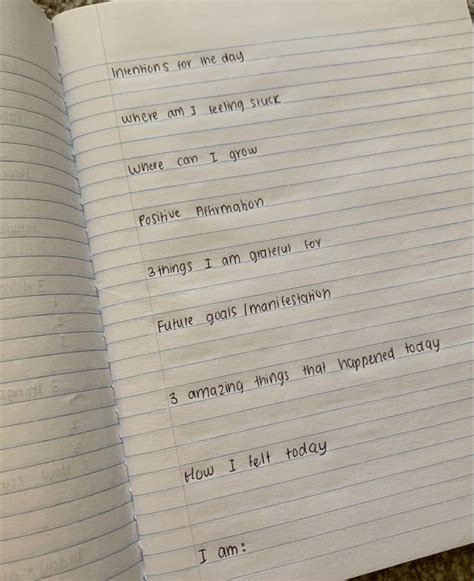 Intentions for the day
Where am I feeling stuck
Where can I grow
Positive Affirmation
3 things I am grateful for
Future goals /manifestation
3 amazing things that happened today
How I felt today
I am: